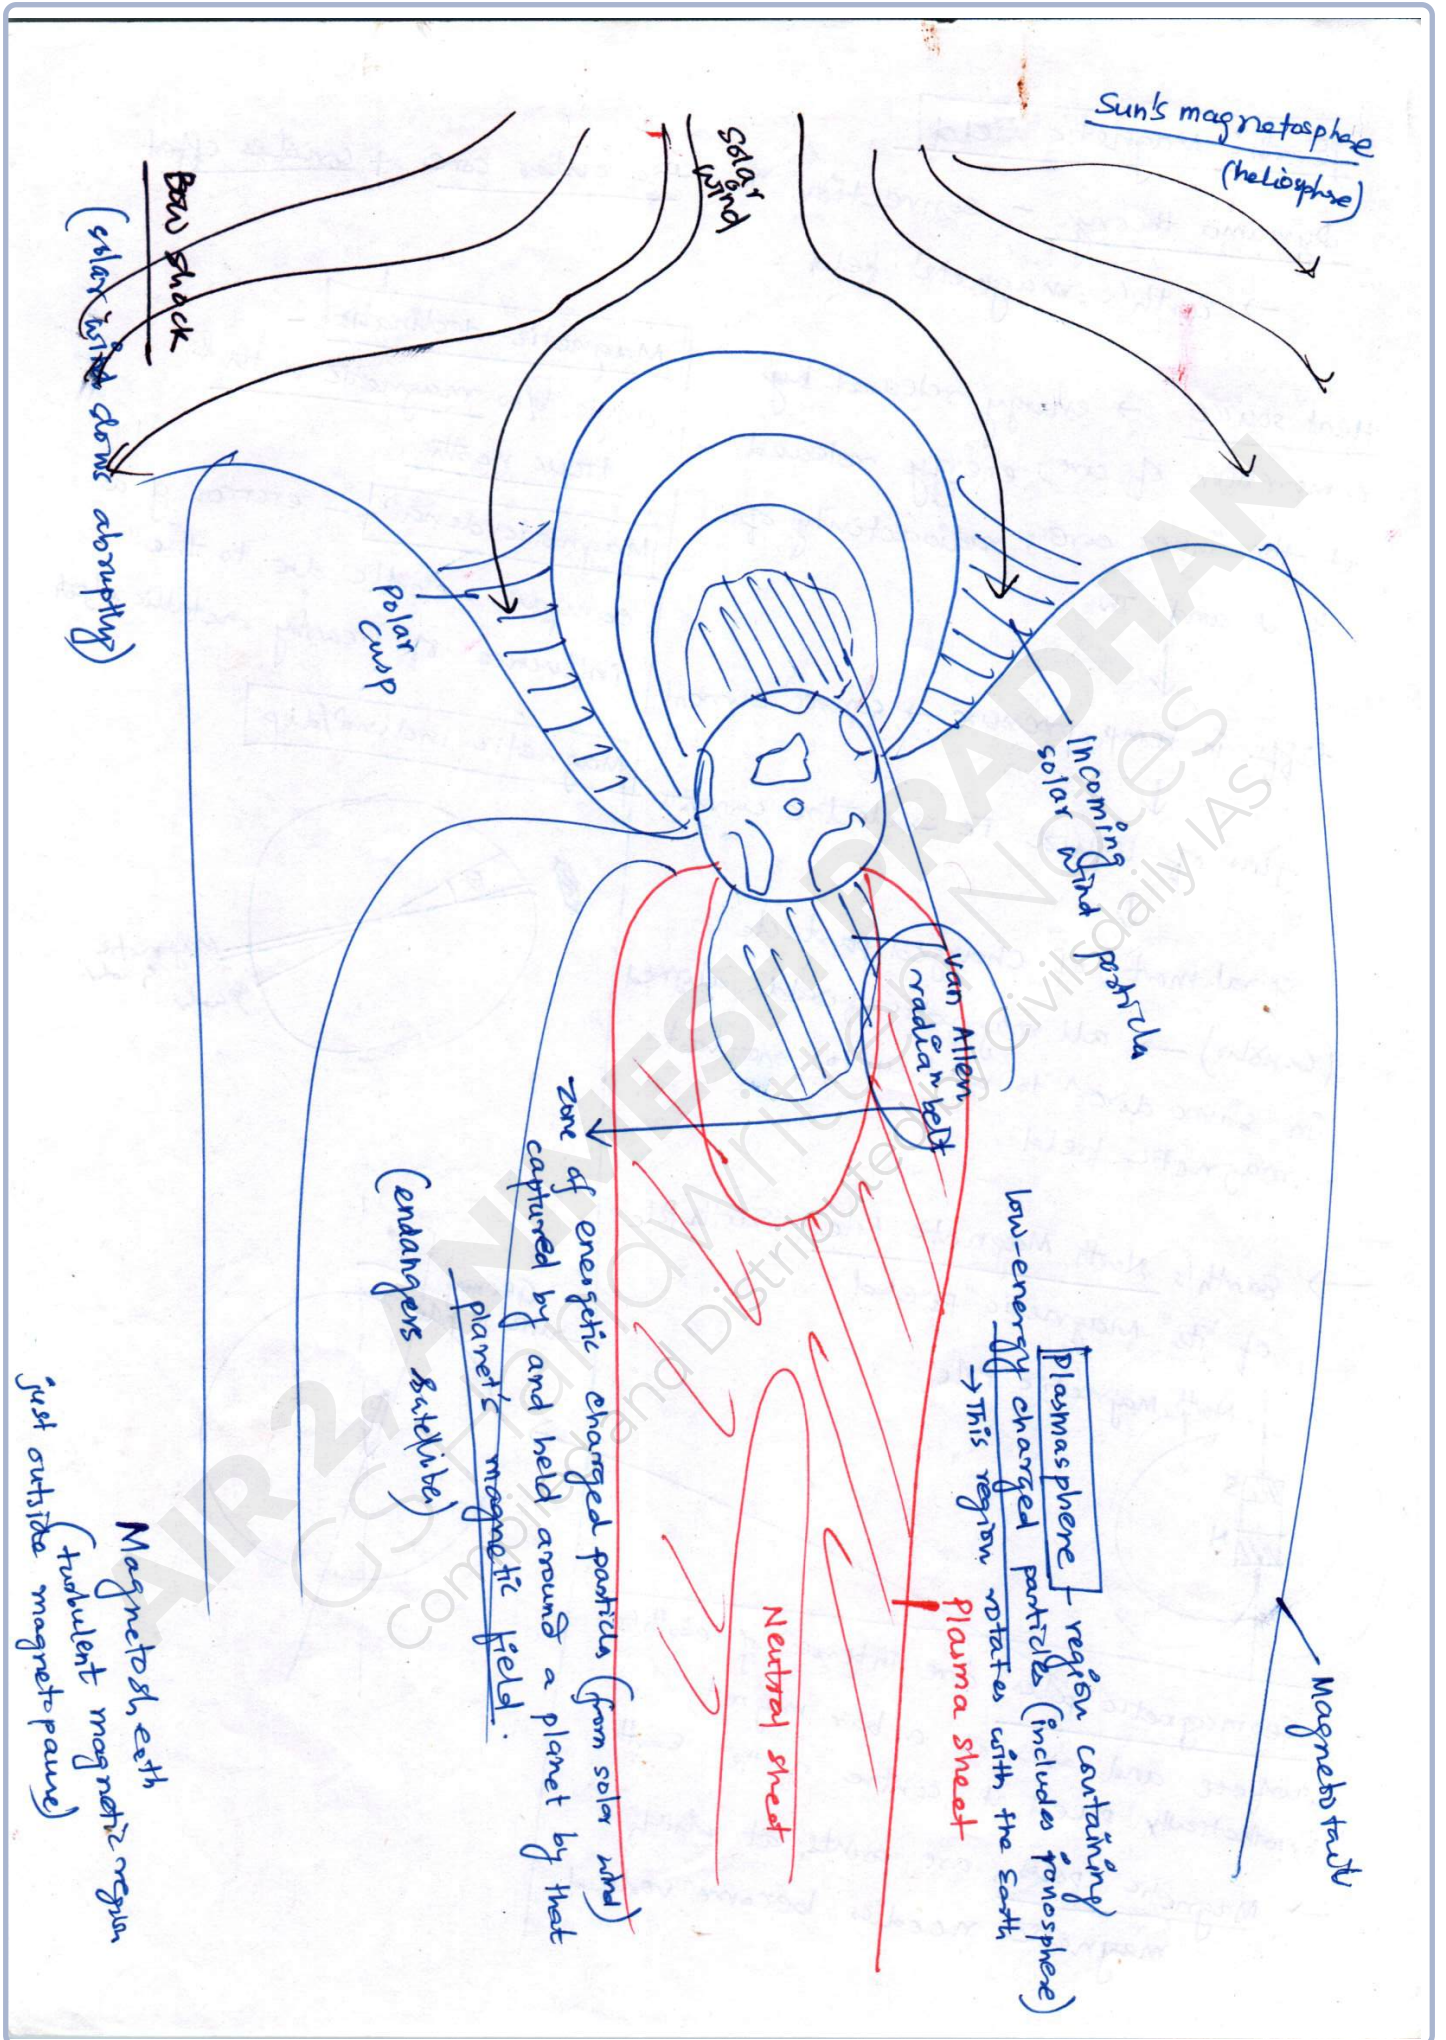 Sun's magnetosphere
(heliosphere)
Solar
wind
Bow shock
(solar wind slows abruptly)
Polar
cusp
Incoming
solar wind particles
Van Allen
radian belt
zone of energetic charged particles (from solar wind)
captured by and held around a planet by that
planet's magnetic field.
(endangers satellites)
Plasmasphere - region containing
low-energy charged particles (includes ionosphere)
→ This region rotates with the Earth
Plasma sheet
Neutral sheet
Magnetotail
Magnetosheath
(turbulent magnetic region
just outside magnetopause)
AIR 2, ANIMESH PRADHAN
GS Handwritten Notes
Compiled and Distributed by Civilsdaily IAS